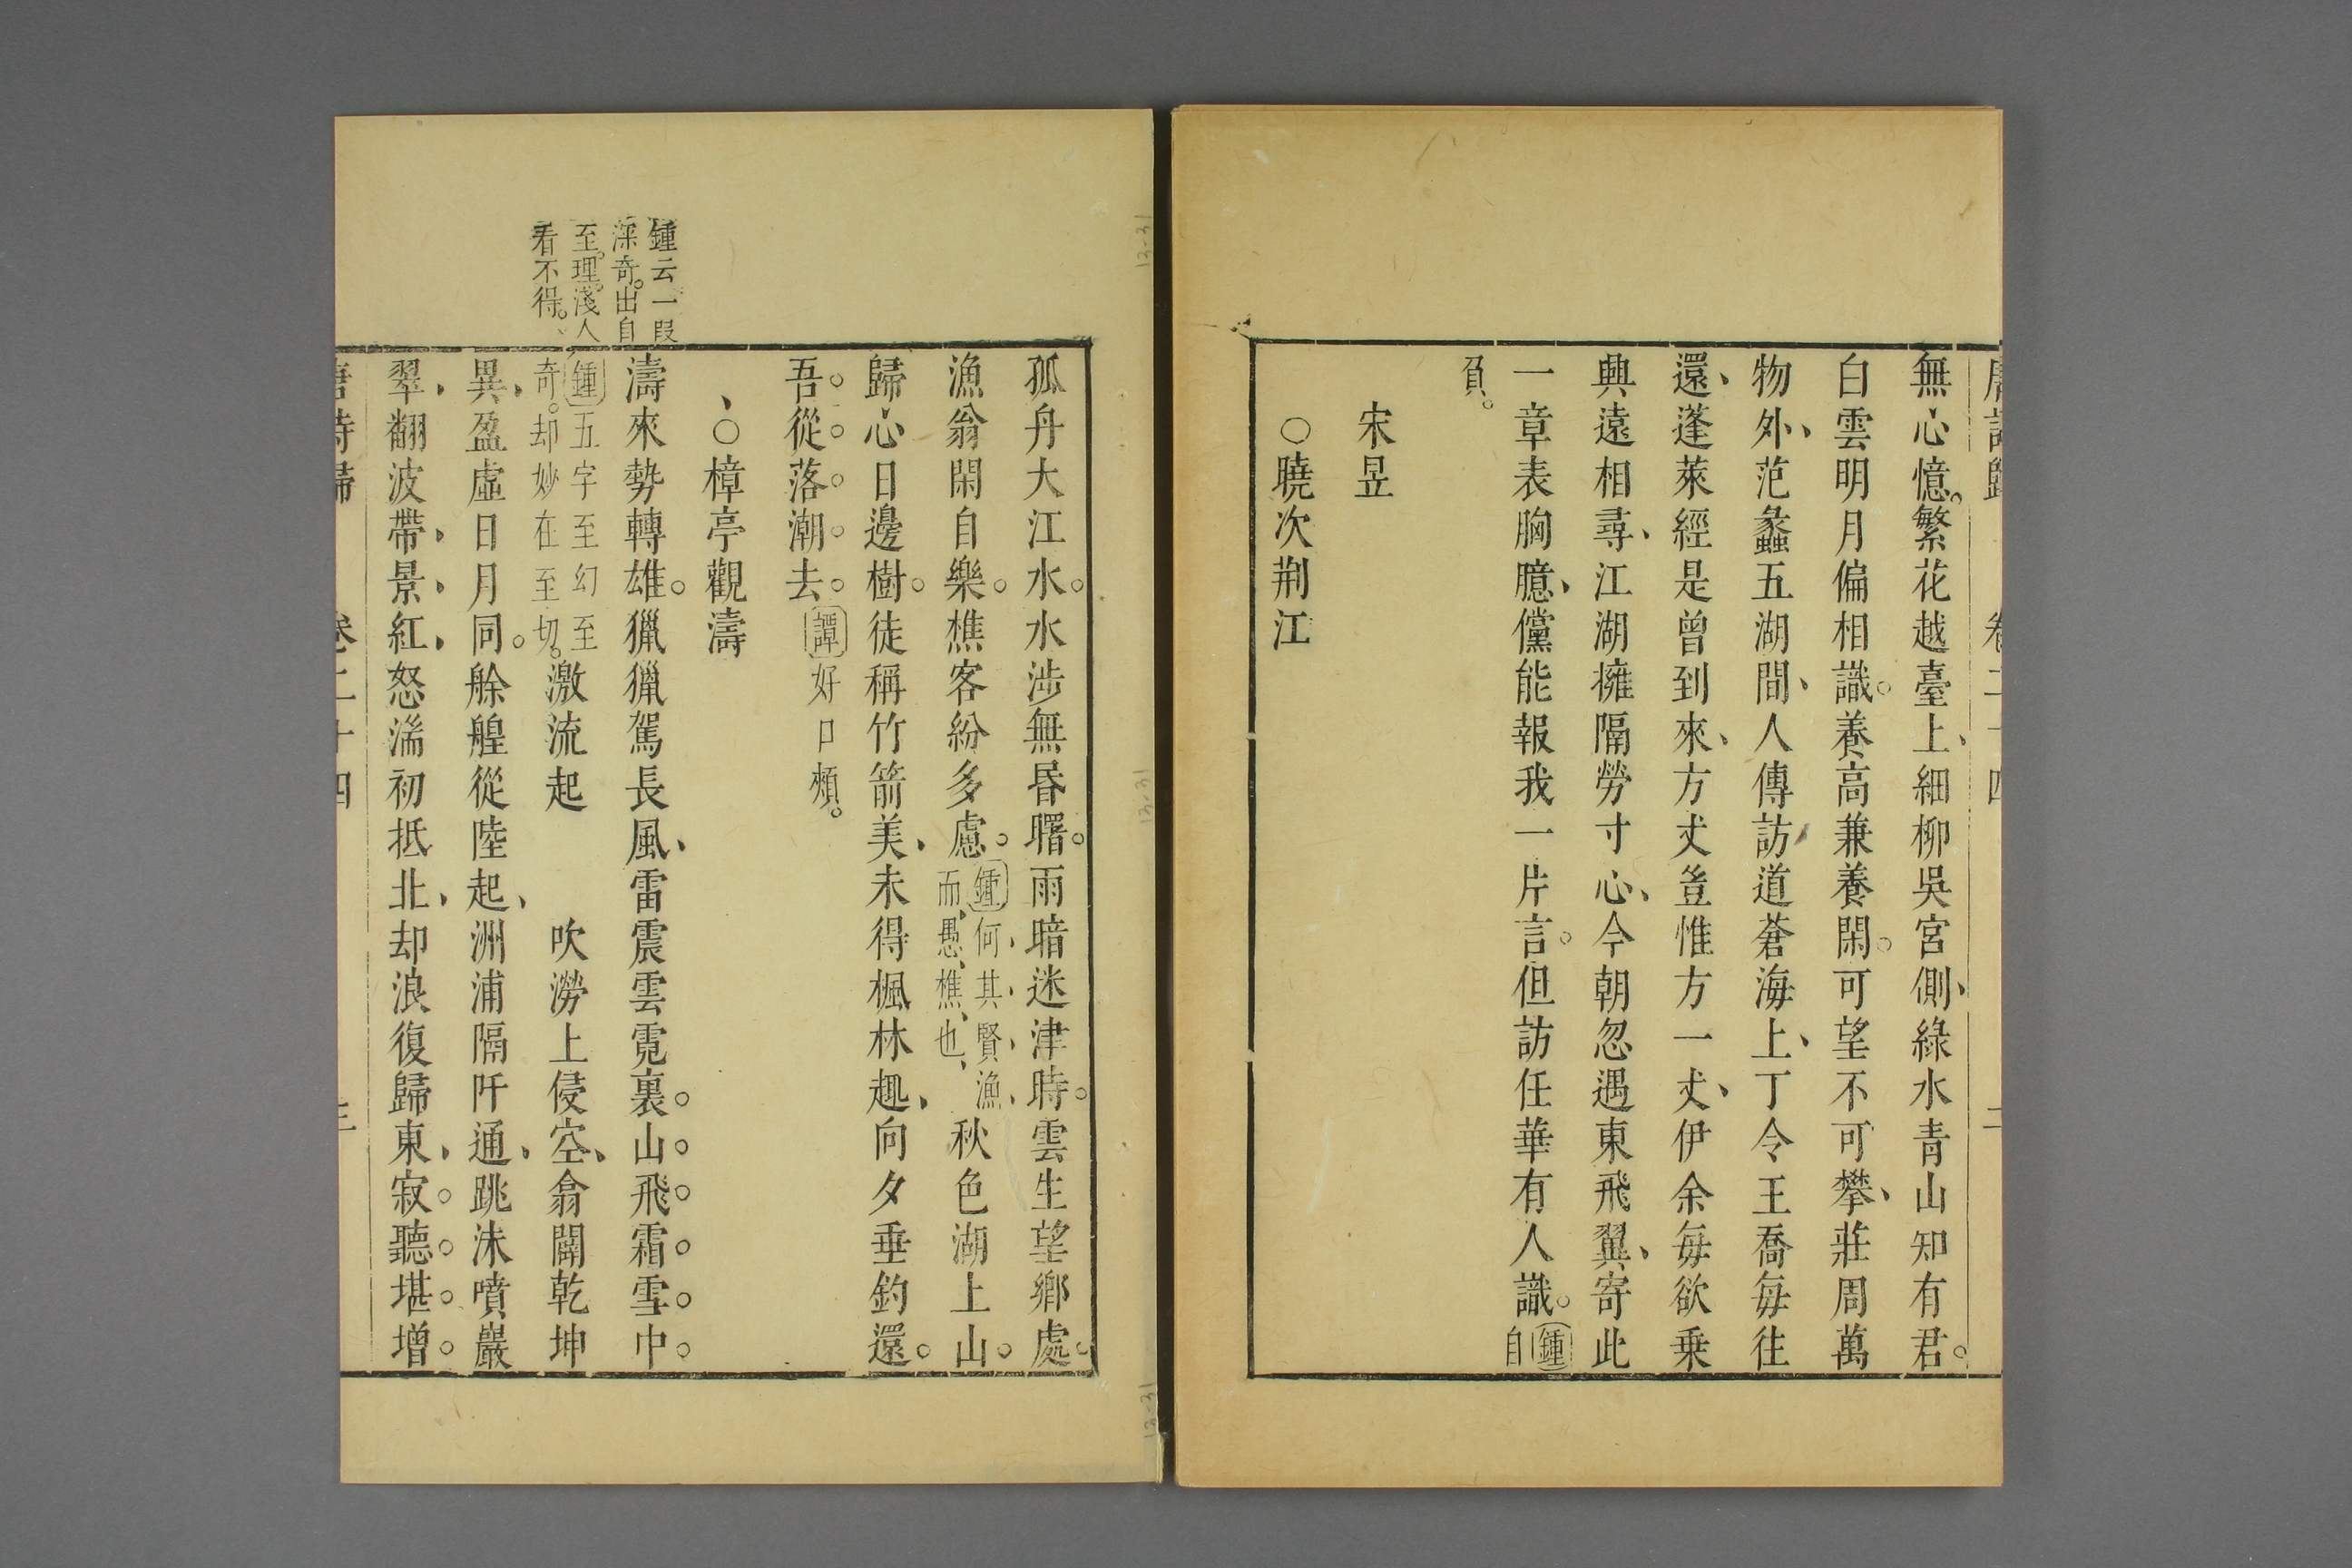 唐詩歸 卷二十四 二
無心憶。繁花越臺上、細柳吳宮側、綠水青山知有君。
白雲明月偏相識。養高兼養閑。可望不可攀、莊周萬
物外、范蠡五湖間、人傳訪道蒼海上、丁令王喬每往
還、蓬萊經是曾到來、方丈豈惟方一丈、伊余每欲乗
興遠相尋、江湖擁隔勞寸心、今朝忽遇東飛翼、寄此
一章表胸臆、儻能報我一片言。但訪任華有人識。鍾自
負。
宋昱
○曉次荆江
孤舟大江水。水涉無昏曙。雨暗迷津時。雲生望鄉處。
漁翁閑自樂。樵客紛多慮。鍾何、其、賢、漁、而、愚、樵、也、秋色湖上山。
歸心日邊樹。徒稱竹箭美、未得楓林趣、向夕垂釣還。
吾。從。落。潮。去。譚好口頰。
、○樟亭觀濤
濤來勢轉雄。獵獵駕長風、雷震雲霓裏。山。飛。霜。雪。中。
鍾五字至幻至奇。却妙在至切。激流起 吹澇上侵空、翕闢乾坤
異、盈虛日月同。艅艎從陸起、洲浦隔阡通、跳沫噴巖
翠、翻波帶、景、紅、怒湍初抵北、却浪復歸東、寂。聽。堪。增。
唐詩歸 卷二十四 三
鍾云一段
深奇。出自
至理。淺人
看不得。